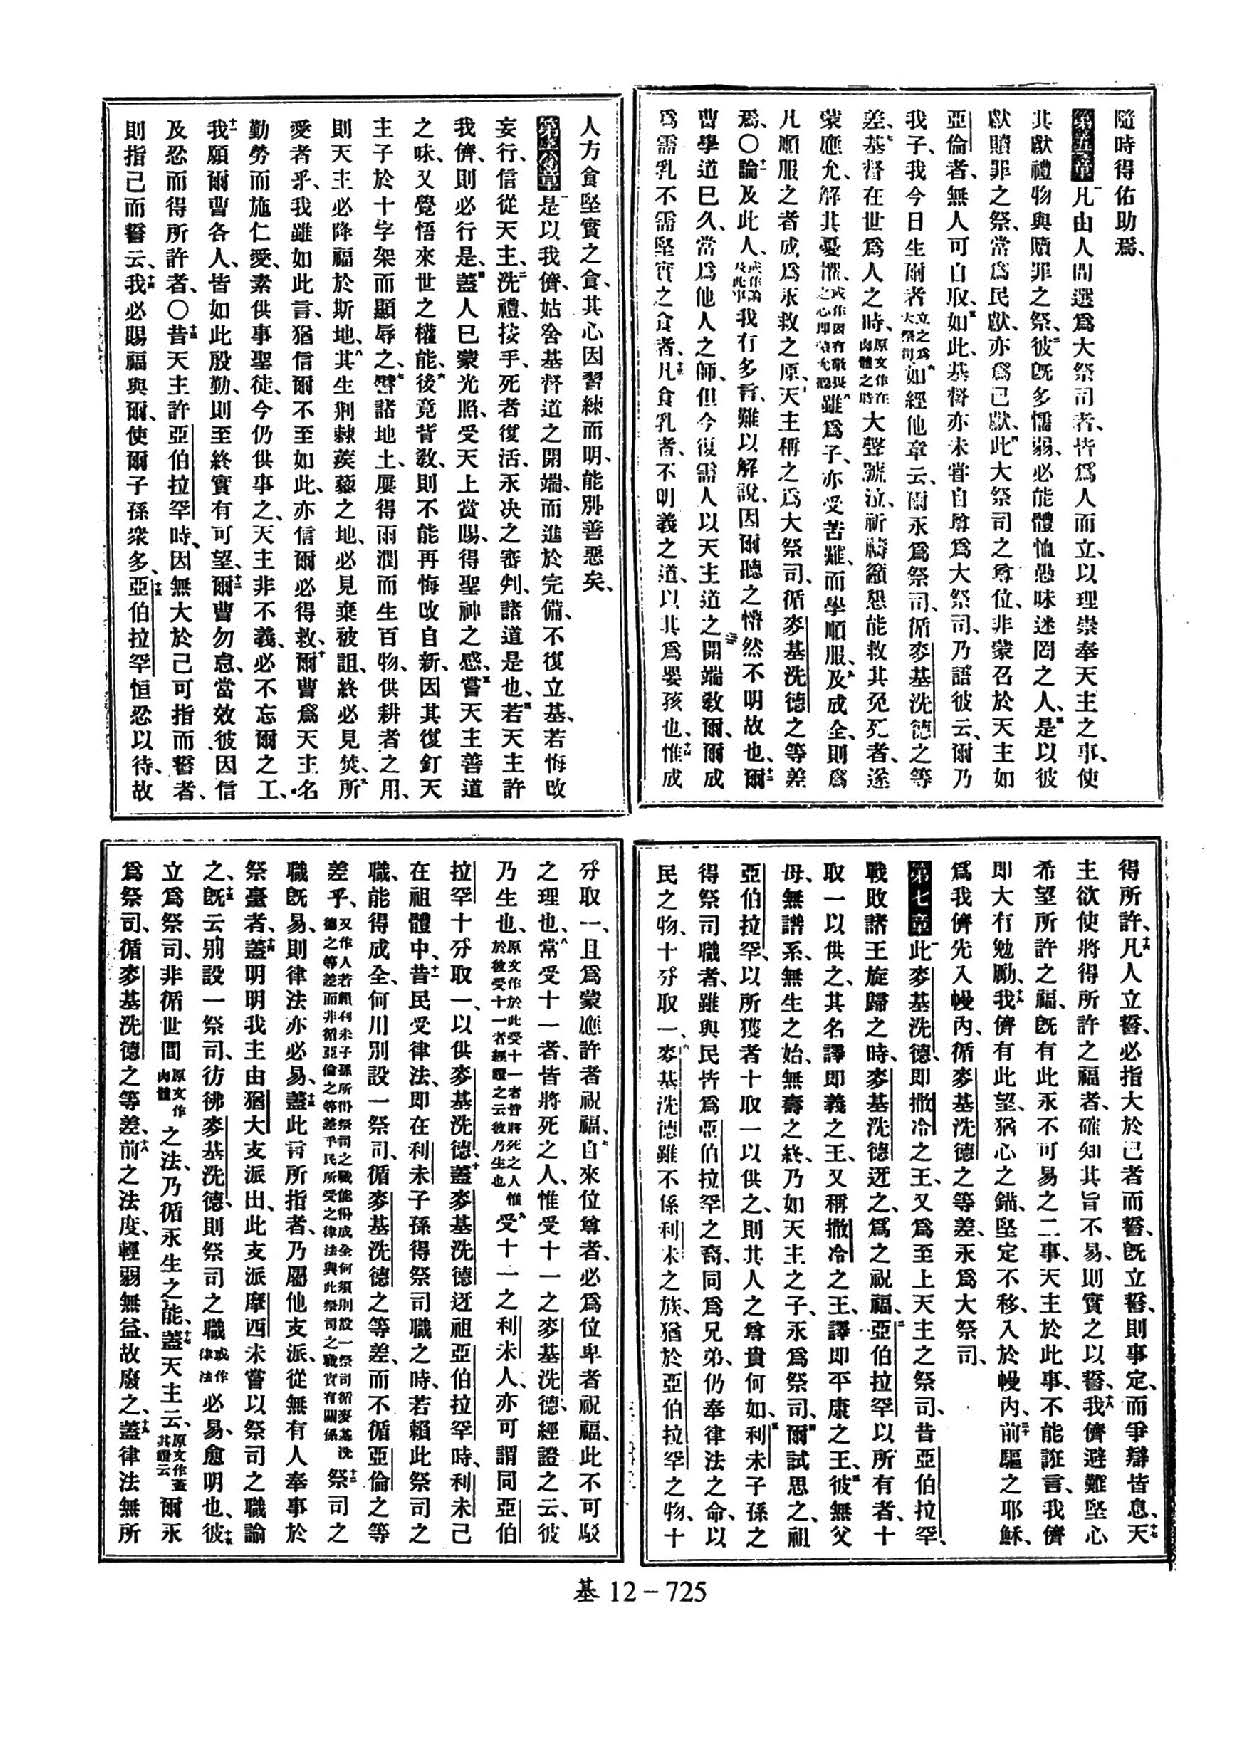 隨時得佑助焉、
第五章 一凡由人間選爲大祭司者、皆爲人而立、以理崇奉天主之事、使
其獻禮物與贖罪之祭、二彼旣多懦弱、必能體恤愚味迷罔之人、三是以彼
獻贖罪之祭、常爲民獻、亦爲己獻、四此大祭司之尊位、非蒙召於天主如
亞倫者、無人可自取、五如此、基督亦未嘗自尊爲大祭司、乃語彼云、爾乃
我子、我今日生爾者立之爲大祭司、六如經他章云、爾永爲祭司、循麥基洗德之等
差、七基督在世爲人之時、原文作在肉體之時大聲號泣、祈禱籲懇能救其免死者、遂
蒙應允、解其憂懼、八雖爲子、亦受苦難、而學順服、九及成全、則爲
凡順服之者成爲永救之原、十天主稱之爲大祭司、循麥基洗德之等差
焉、〇十一論及此人、或作論及此事我有多言、難以解說、因爾聽之惛然不明故也、十二爾
曹學道已久、當爲他人之師、但今復需人以天主道之開端敎爾、爾成
爲需乳不需堅實之食者、十三凡食乳者、不明義之道、以其爲嬰孩也、十四惟成
人方食堅實之食、其心因習練而明、能別善惡矣、
第六章 一是以我儕姑舍基督道之開端、而進於完備、不復立基、若悔改
妄行、信從天主、二洗禮、按手、死者復活、永決之審判、諸道是也、三若天主許
我儕、則必行是、四蓋人已蒙光照、受天上賞賜、得聖神之感、五嘗天主善道
之味、又覺悟來世之權能、六後竟背敎、則不能再悔改自新、因其復釘天
主子於十字架而顯辱之、七譬諸地土、屢得雨潤而生百物、供耕者之用、
則天主必降福於斯地、八其生荆棘蒺藜之地、必見棄被詛、終必見焚、九所
愛者乎、我雖如此言、猶信爾不至如此、亦信爾必得救、十爾曹爲天主名
勤勞而施仁愛、素供事聖徒、今仍供事之、天主非不義、必不忘爾之工、
十一我願爾曹各人、皆如此殷勤、則至終實有可望、十二爾曹勿怠、當效彼因信
及忍而得所許者、〇十三昔天主許亞伯拉罕時、因無大於己可指而誓者、
則指己而誓云、十四我必賜福與爾、使爾子孫衆多、十五亞伯拉罕恒忍以待、故
得所許、十六凡人立誓、必指大於己者而誓、旣立誓、則事定、而爭辯皆息、十七天
主欲使將得所許之福者、確知其旨不易、則實之以誓、十八我儕避難堅心
希望所許之福、旣有此永不可易之二事、天主於此事不能誑言、我儕
即大有勉勵、十九我儕有此望、猶心之錨、堅定不移、入於幔內、二十前驅之耶穌、
爲我儕先入幔內、循麥基洗德之等差、永爲大祭司、
第七章 一此麥基洗德、即撒冷之王、又爲至上天主之祭司、昔亞伯拉罕、
戰敗諸王旋歸之時、麥基洗德迓之、爲之祝福、二亞伯拉罕以所有者、十
取一以供之、其名譯即義之王、又稱撒冷之王、譯即平康之王、三彼無父
母、無譜系、無生之始、無壽之終、乃如天主之子、永爲祭司、四爾試思之、祖
亞伯拉罕、以所獲者十取一以供之、則其人之尊貴何如、五利未子孫之
得祭司職者、雖與民皆爲亞伯拉罕之裔、同爲兄弟、仍奉律法之命、以
民之物、十分取一、六麥基洗德雖不係利未之族、猶於亞伯拉罕之物、十
分取一、且爲蒙應許者祝福、七自來位尊者、必爲位卑者祝福、此不可駁
之理也、八常受十一者、皆將死之人、惟受十一之麥基洗德、經證之云、彼
乃生也、原文作於此受十一者皆將死之人惟於彼受十一者經證之云彼乃生也九受十一之利未人、亦可謂同亞伯
拉罕十分取一、以供麥基洗德、十蓋麥基洗德迓祖亞伯拉罕時、利未已
在祖體中、十一昔民受律法、即在利未子孫得祭司職之時、若賴此祭司之
職、能得成全、何用別設一祭司、循麥基洗德之等差、而不循亞倫之等
差乎、又作人若賴利未子孫所得祭司之職能得成全何須別設一祭司循麥基洗德之等差而非循亞倫之等差乎民所受之律法與此祭司之職實有關係十二祭司之
職旣易、則律法亦必易、十三蓋此言所指者、乃屬他支派、從無有人奉事於
祭臺者、十四蓋明明我主由猶大支派出、此支派摩西未嘗以祭司之職論
之、十五旣云別設一祭司、彷彿麥基洗德、則祭司之職或作律法必易、愈明也、十六彼
立爲祭司、非循世間原文作肉體之法、乃循永生之能、十七蓋天主云、原文作蓋其證云爾永
爲祭司、循麥基洗德之等差、十八前之法度、輕弱無益、故廢之、十九蓋律法無所
基 12－725